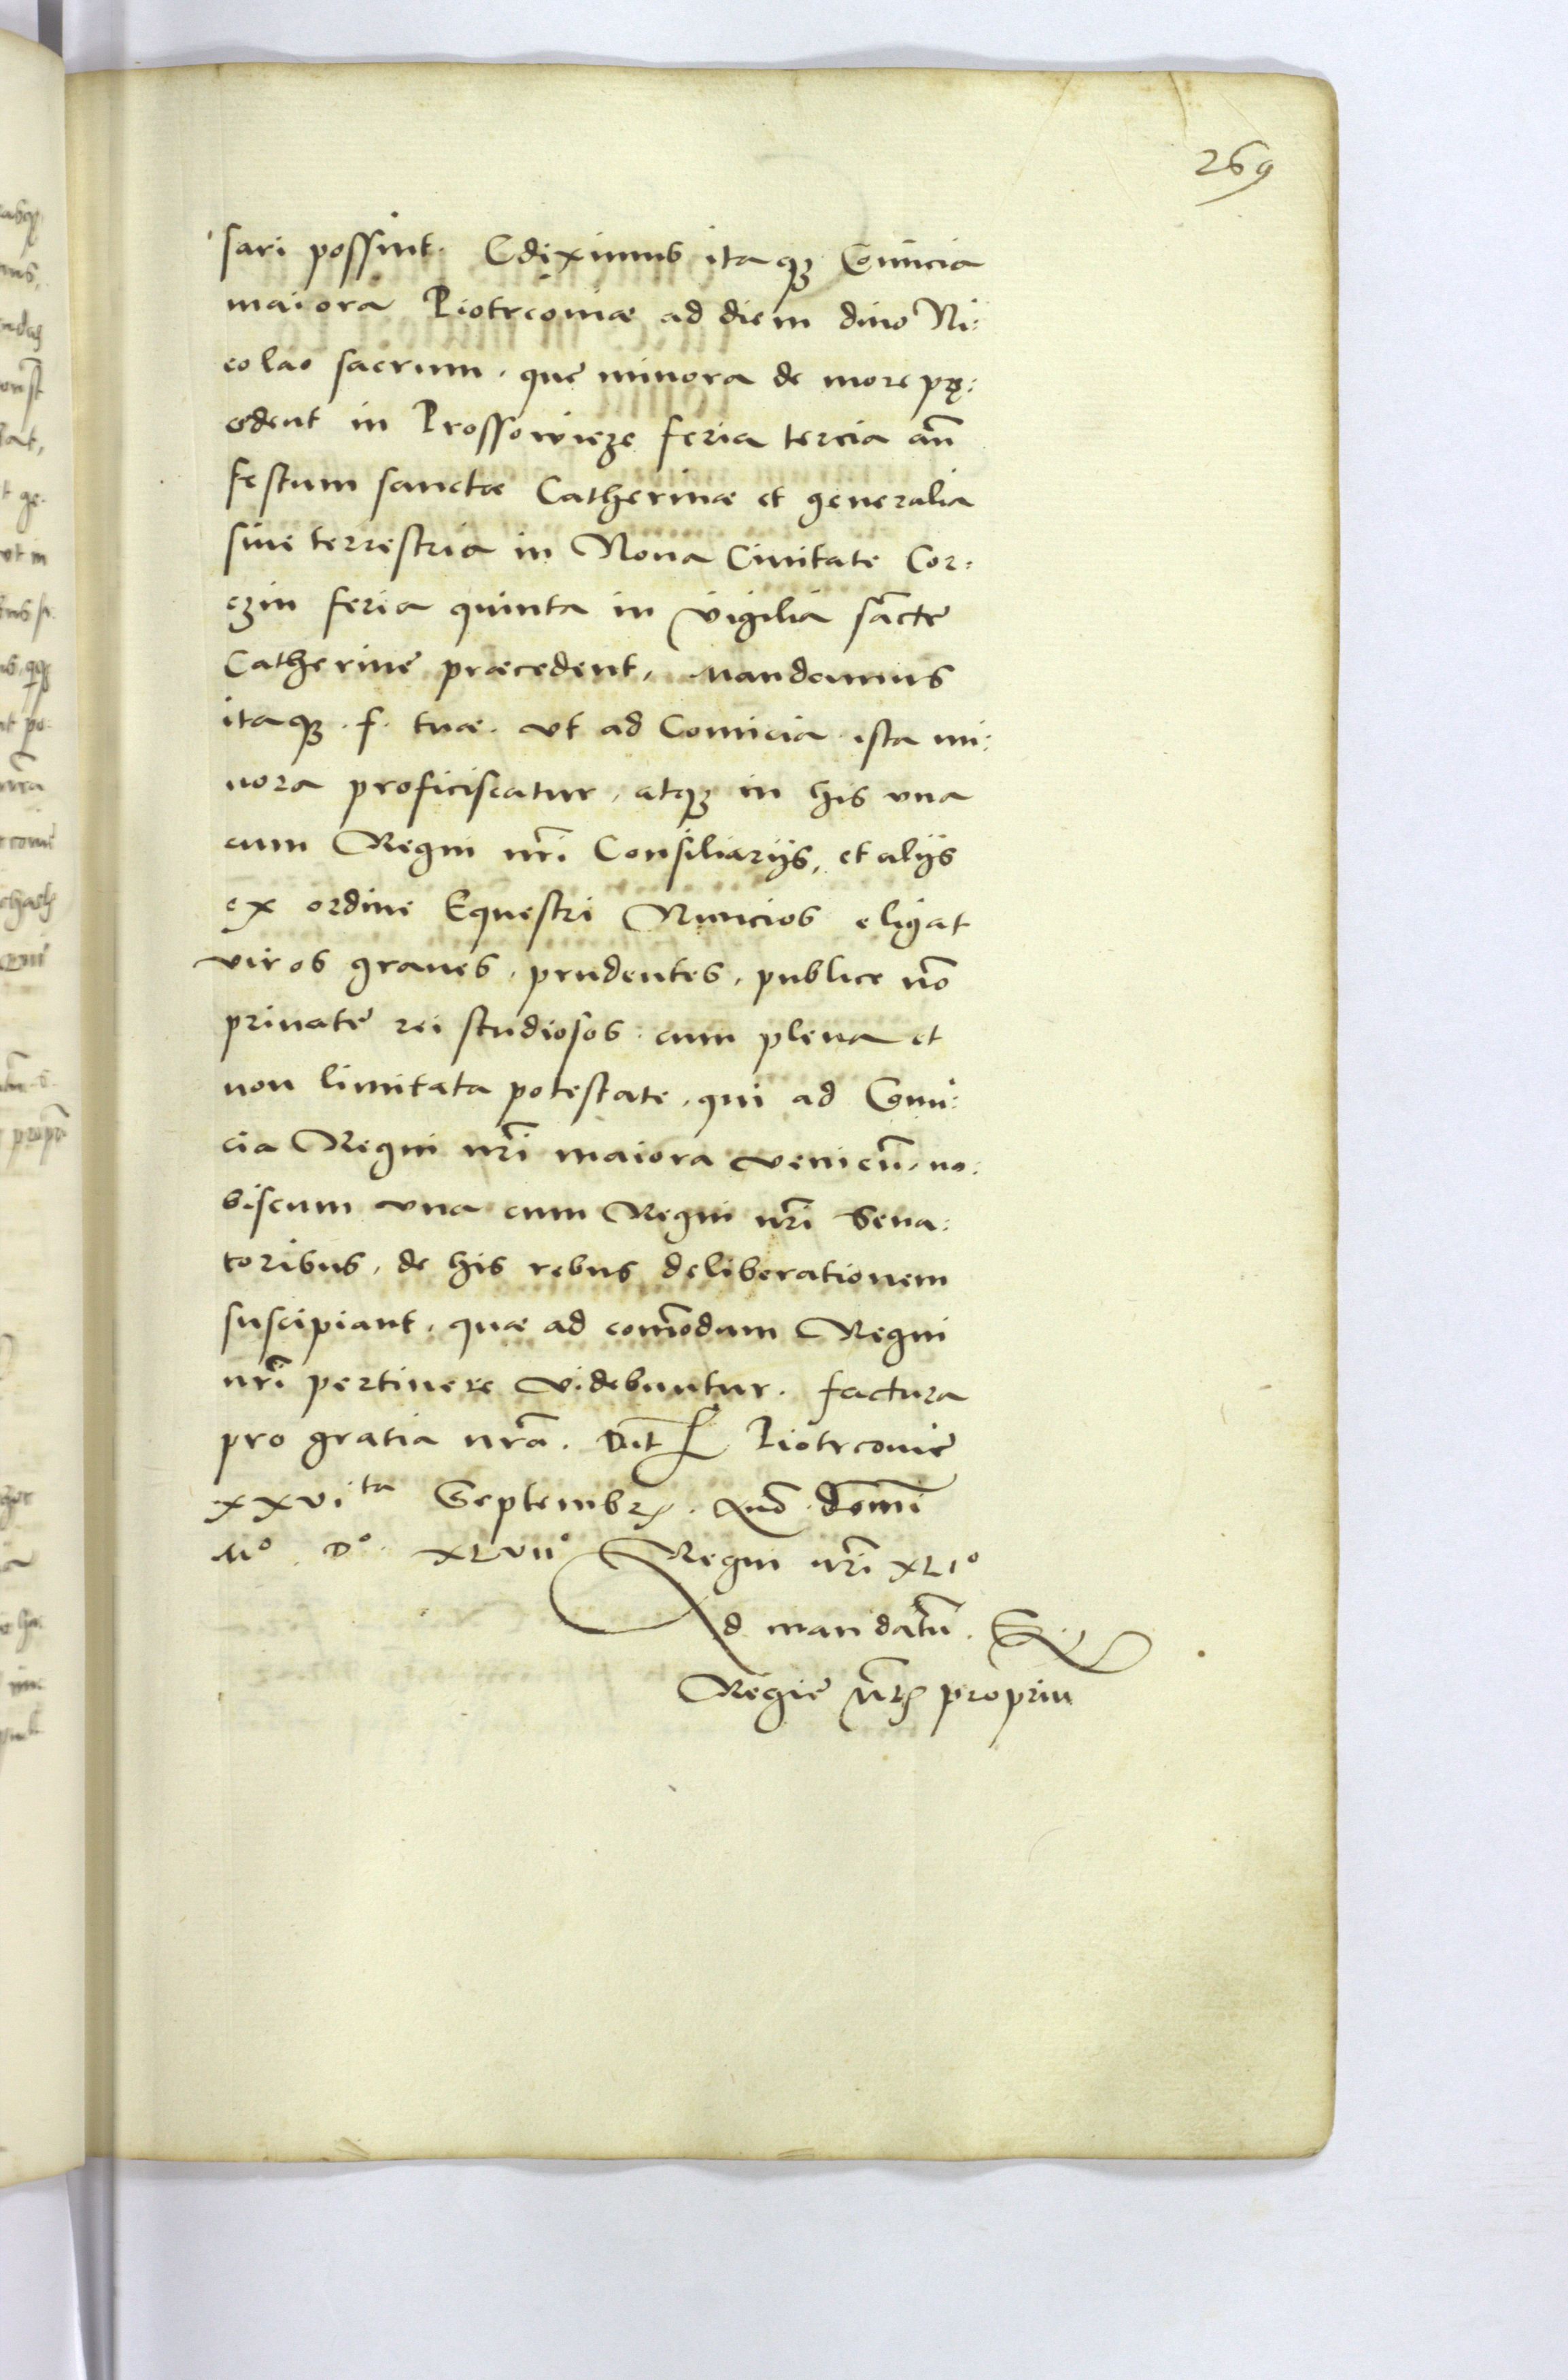 269
sari possint. Ediximus itaq₃ Comicia
maiora Piotrcoviæ ad diem divo Ni:
colao sacrum. que minora de more pę:
cedent in Prossowicze feria tercia añ
festum sanctæ Catherinæ et generalia
siue terrestria in Noua Ciuitate Cor:
czin feria quinta in vigilia sāctę
Catherinę præcedent, Mandamus
itaq₃. f. tuæ. vt ad Comicia ista mi:
nora proficiscatur, atq₃ in his vna
cum Regni nrī Consiliarijs, et alijs
ex ordine Equestri Nuncios eligat
viros graues, prudentes, publice nō
priuatę rei studiosos: cum plena et
non limitata potestate, qui ad Comi:
cia Regni nrī maiora veniēn, no:
biscum vna cum Regni nrī Sena:
toribus, de his rebus deliberationem
suscipiant, quæ ad com̄odum Regni
nrī pertinere videbuntur. factura
pro gratia nrā. Dat Piotrcovię
xxvi ta Septembr. Anō domī
Mº. Dº. XLVIIº Regni nrī XLIº
Ad mandatū. S
Regię proprīu